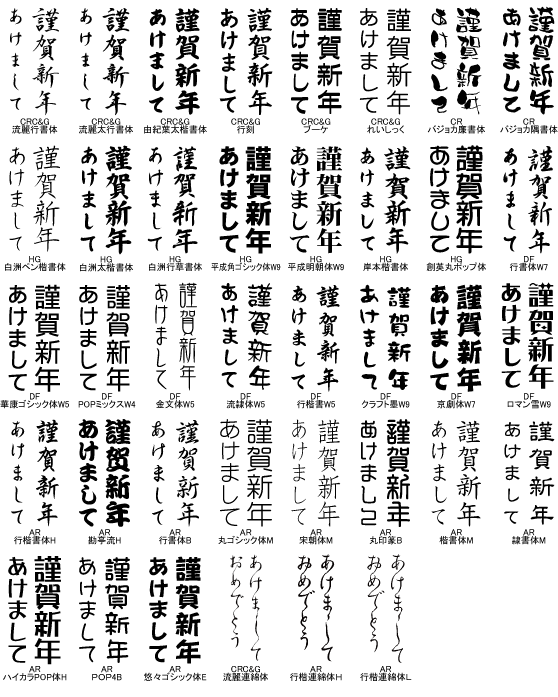 謹賀新年 あけまして
謹賀新年 あけまして
謹賀新年 あけまして
謹賀新年 あけまして
謹賀新年 あけまして
謹賀新年 あけまして
謹賀新年 あけまして
謹賀新年 あけまして
CRC&G CRC&G CRC&G CRC&G CRC&G CRC&G CR CR
流麗行書体 流麗太行書体 由紀葉太楷書体 行刻 ブーケ れいしっく バジョカ廉書体 バジョカ隅書体
謹賀新年 あけまして
謹賀新年 あけまして
謹賀新年 あけまして
謹賀新年 あけまして
謹賀新年 あけまして
謹賀新年 あけまして
謹賀新年 あけまして
謹賀新年 あけまして
HG HG HG HG HG HG HG DF
白洲ペン楷書体 白洲太楷書体 白洲行草書体 平成角ゴシック体W9 平成明朝体W9 岸本楷書体 創英丸ポップ体 行書体W7
謹賀新年 あけまして
謹賀新年 あけまして
謹賀新年 あけまして
謹賀新年 あけまして
謹賀新年 あけまして
謹賀新年 あけまして
謹賀新年 あけまして
謹賀新年 あけまして
DF DF DF DF DF DF DF DF
華康ゴシック体W5 POPミックスW4 金文体W5 流隷体W5 行楷書W5 クラフト墨W9 京劇体W7 ロマン雪W9
謹賀新年 あけまして
謹賀新年 あけまして
謹賀新年 あけまして
謹賀新年 あけまして
謹賀新年 あけまして
謹賀新年 あけまして
謹賀新年 あけまして
謹賀新年 あけまして
AR AR AR AR AR AR AR AR
行楷書体H 勘亭流H 行書体B 丸ゴシック体M 宋朝体M 丸印篆B 楷書体M 隷書体M
謹賀新年 あけまして
謹賀新年 あけまして
謹賀新年 あけまして
あけまして おめでとう
あけまして おめでとう
あけまして おめでとう
AR AR AR CRC&G AR AR
ハイカラPOP体H POP4B 悠々ゴシック体E 流麗連綿体 行楷連綿体H 行楷連綿体L